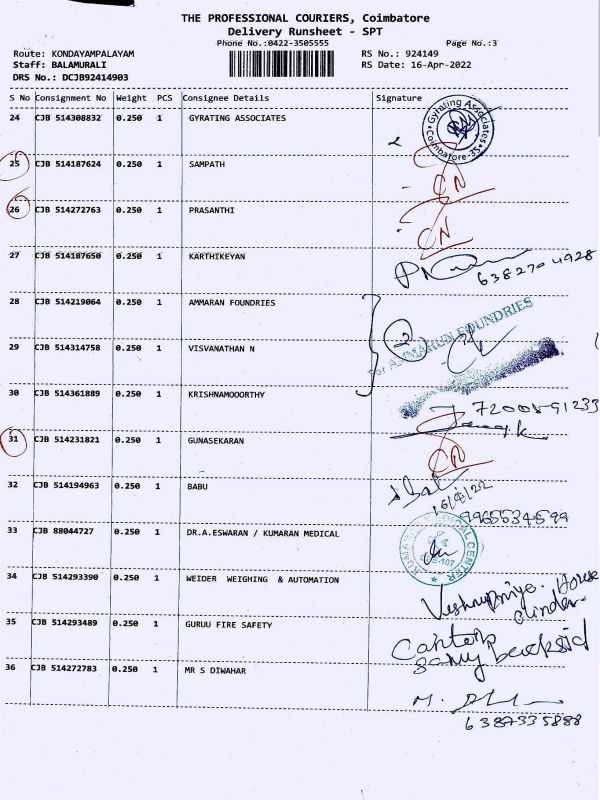 THE PROFESSIONAL COURIERS, Coimbatore
Delivery Runsheet - SPT
Phone No.:0422-3505555 Page No.:3
Route: KONDAYAMPALAYAM RS No.: 924149
Staff: BALAMURALI RS Date: 16-Apr-2022
DRS No.: DCJB92414903
S No Consignment No Weight PCS Consignee Details Signature
24 CJB 514308832 0.250 1 GYRATING ASSOCIATES
Gyrating Associates
Coimbatore-35
25 CJB 514187624 0.250 1 SAMPATH
CN
26 CJB 514272763 0.250 1 PRASANTHI
CN
27 CJB 514187650 0.250 1 KARTHIKEYAN
6382704928
28 CJB 514219064 0.250 1 AMMARAN FOUNDRIES
For AMMARUN FOUNDRIES
2
29 CJB 514314758 0.250 1 VISVANATHAN N
30 CJB 514361889 0.250 1 KRISHNAMOOORTHY
7200591233
31 CJB 514231821 0.250 1 GUNASEKARAN
CN
32 CJB 514194963 0.250 1 BABU
16/4/22
9965534599
33 CJB 88044727 0.250 1 DR.A.ESWARAN / KUMARAN MEDICAL
34 CJB 514293390 0.250 1 WEIDER WEIGHING & AUTOMATION
House
35 CJB 514293489 0.250 1 GURUU FIRE SAFETY
36 CJB 514272783 0.250 1 MR S DIWAHAR
6387335888